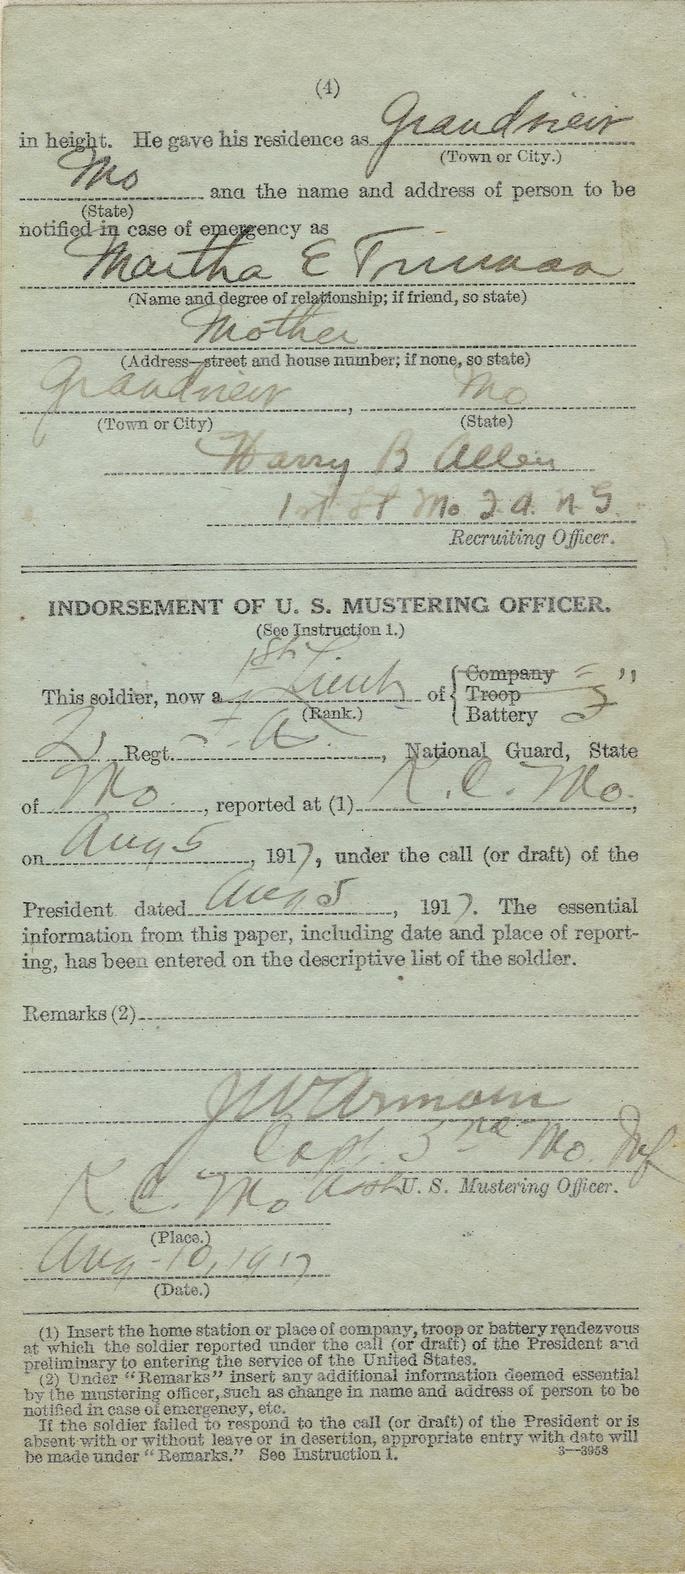 (4)
in height. He gave his residence as Grandview
(Town or City.)
Mo and the name and address of person to be
(State)
notified in case of emergency as
Martha E Truman
(Name and degree of relationship; if friend, so state)
Mother
(Address—street and house number; if none, so state)
Grandview, Mo
(Town or City) (State)
Harry B Allen
1st Lt Mo F. A. N. G.
Recruiting Officer.
INDORSEMENT OF U. S. MUSTERING OFFICER.
(See Instruction 1.)
This soldier, now a 1st Lieut of Company Troop Battery F
(Rank.)
2 Regt. F. A., National Guard, State
of Mo., reported at (1) K. C. Mo.,
on Aug 5, 1917, under the call (or draft) of the
President dated Aug 5, 1917. The essential
information from this paper, including date and place of report-
ing, has been entered on the descriptive list of the soldier.
Remarks (2)
J W Armour
Capt. 3rd Mo. Inf
Asst U. S. Mustering Officer.
K. C. Mo
(Place.)
Aug-10, 1917
(Date.)
(1) Insert the home station or place of company, troop or battery rendezvous
at which the soldier reported under the call (or draft) of the President and
preliminary to entering the service of the United States.
(2) Under "Remarks" insert any additional information deemed essential
by the mustering officer, such as change in name and address of person to be
notified in case of emergency, etc.
If the soldier failed to respond to the call (or draft) of the President or is
absent with or without leave or in desertion, appropriate entry with date will
be made under "Remarks." See Instruction 1. 3—3958